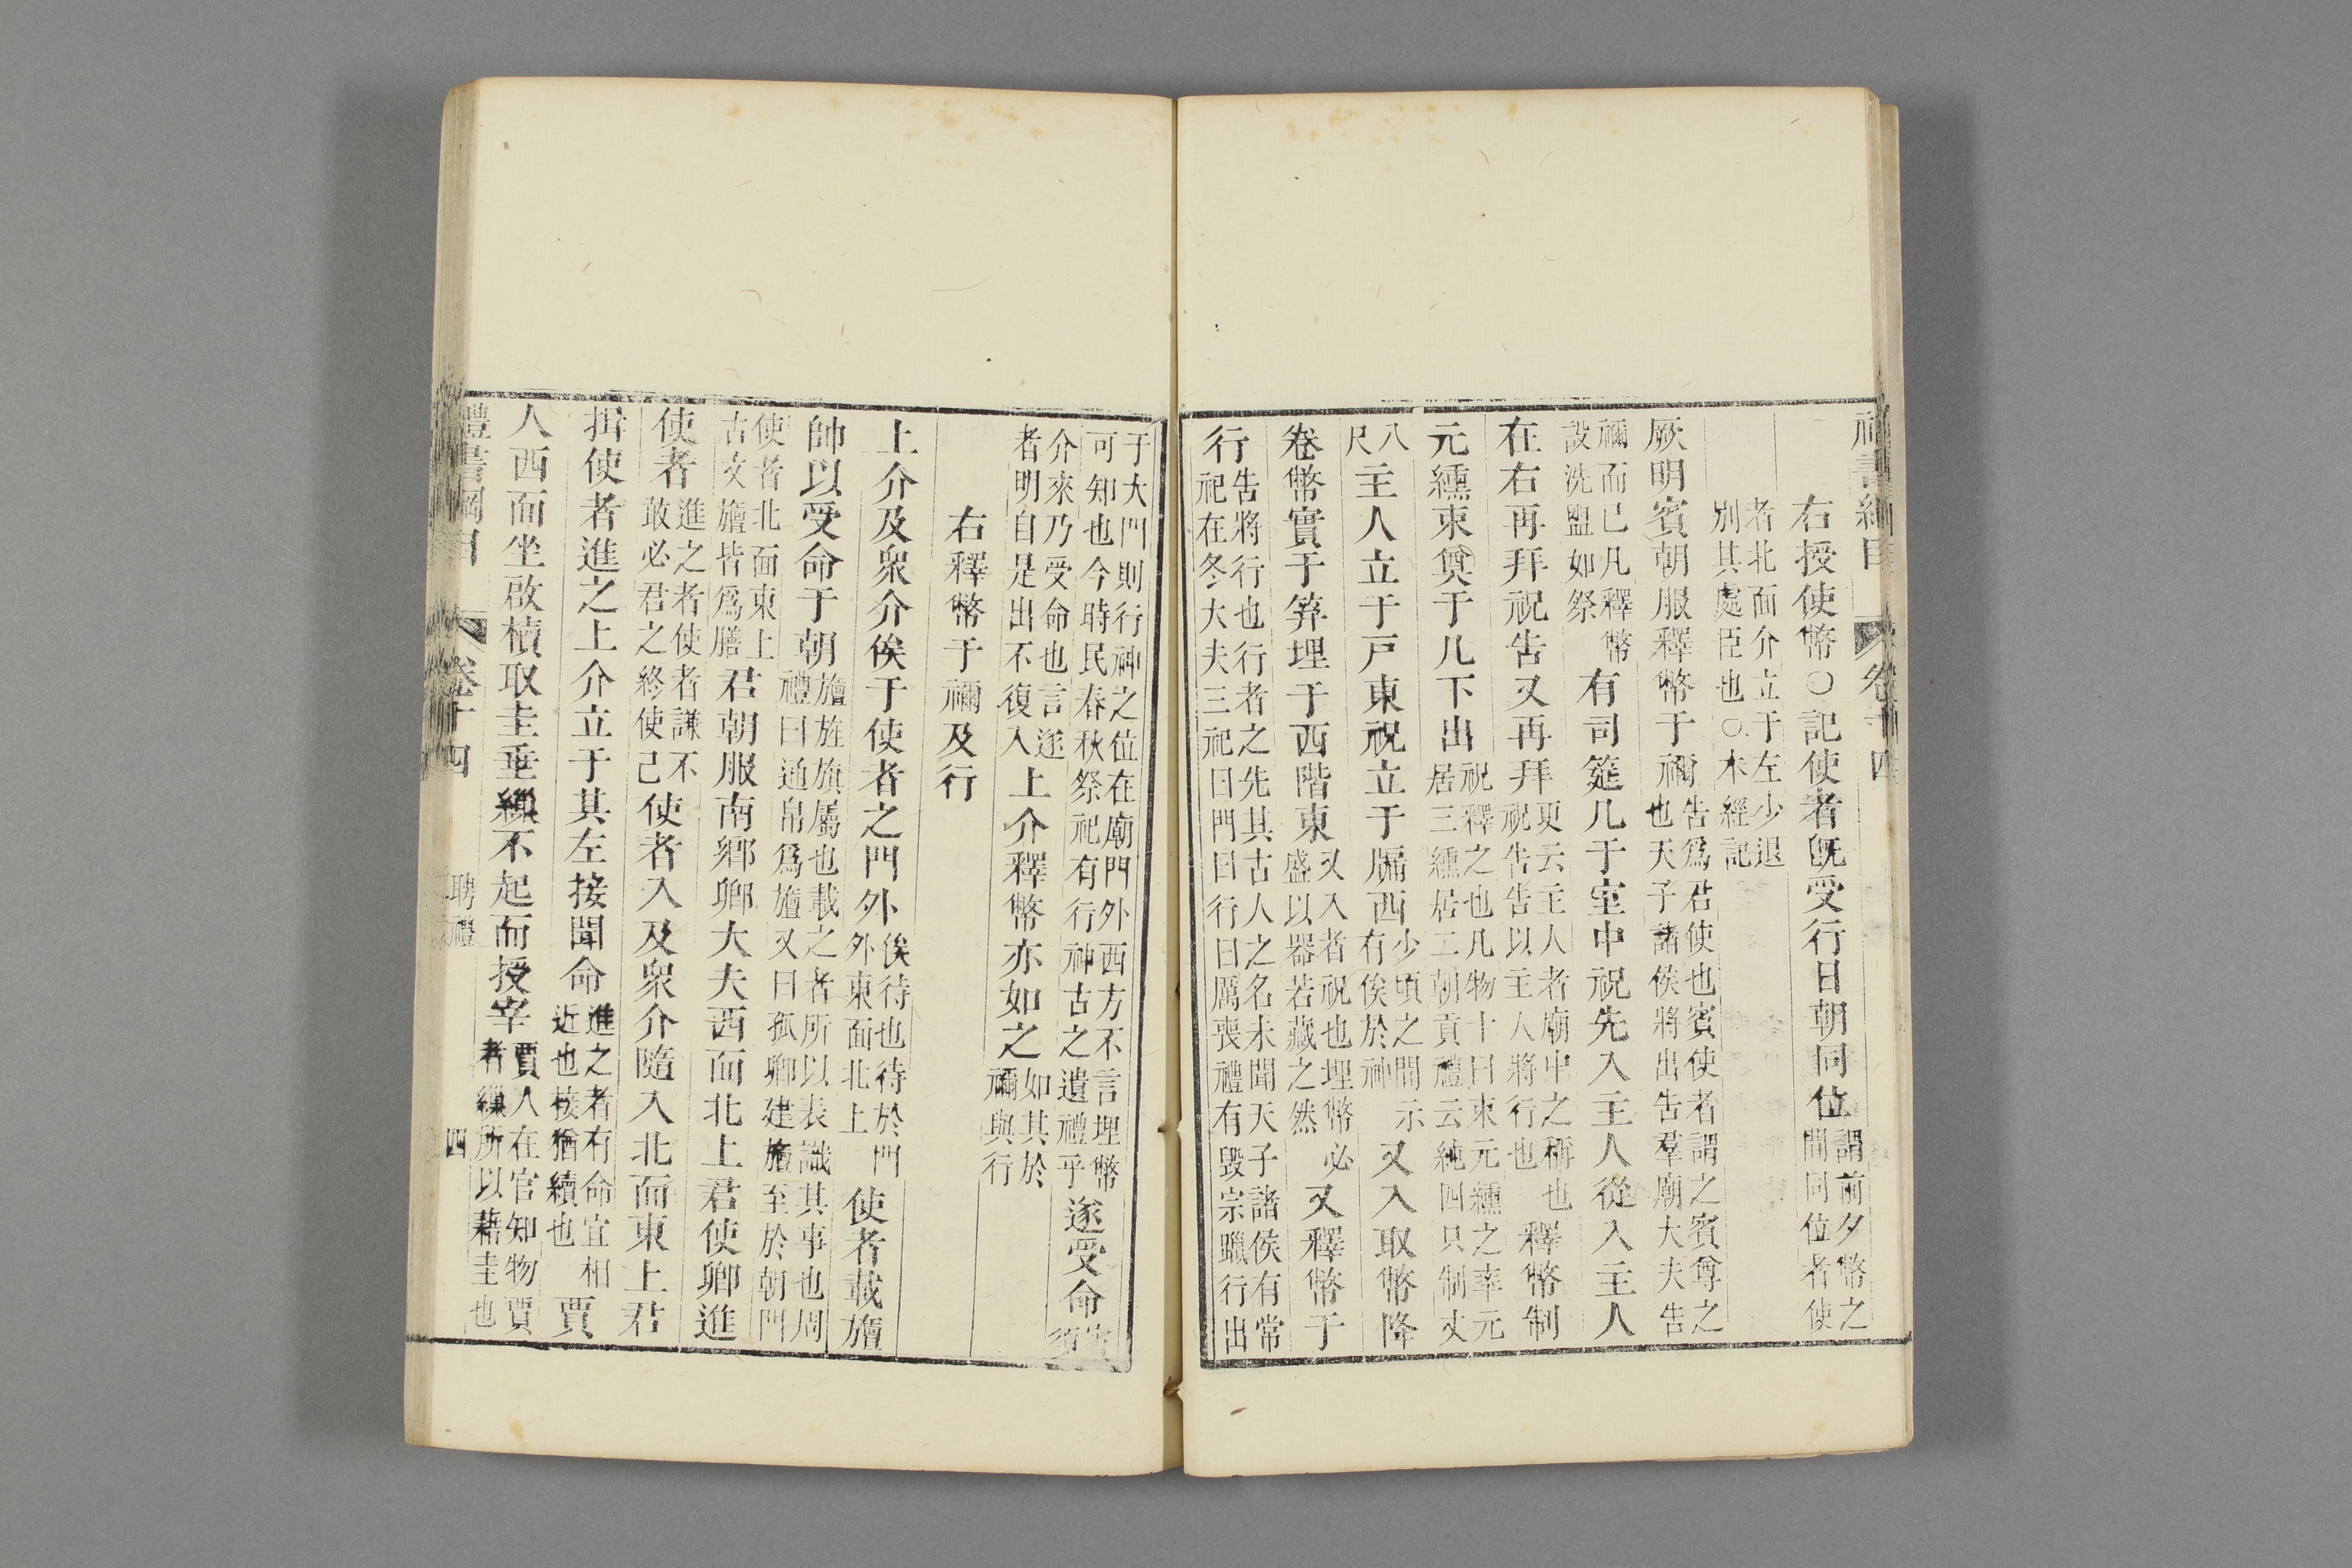 禮書綱目 卷十四
右授使幣○記使者既受行日朝同位謂前夕幣之閒同位者使
者北面介立于左少退別其處臣也○本經記
厥明賓朝服釋幣于禰告爲君使也賓使者謂之賓尊之也天子諸侯將出告羣廟大夫告
禰而已凡釋幣設洗盥如祭有司筵几于室中祝先入主人從入主人
在右再拜祝告又再拜更云主人者廟中之稱也祝告告以主人將行也釋幣制
元纁束奠于几下出祝釋之也凡物十曰束元纁之率元居三纁居二朝貢禮云純四只制丈
八尺主人立于戶東祝立于牖西少頃之間示有俟於神又入取幣降
卷幣實于笲埋于西階東又入者祝也埋幣必盛以器若藏之然又釋幣于
行告將行也行者之先其古人之名未聞天子諸侯有常祀在冬大夫三祀曰門曰行曰厲喪禮有毀宗躐行出
于大門則行神之位在廟門外西方不言埋幣可知也今時民春秋祭祀有行神古之遺禮乎遂受命賓須
介來乃受命也言遂者明自是出不復入上介釋幣亦如之如其於禰與行
右釋幣于禰及行
上介及衆介俟于使者之門外俟待也待於門外東面北上使者載旜
帥以受命于朝旜旌旗屬也載之者所以表識其事也周禮曰通帛爲旜又曰孤卿建旜至於朝門
使者北面東上古文旜皆爲膳君朝服南鄉卿大夫西面北上君使卿進
使者進之者使者謙不敢必君之終使己使者入及衆介隨入北面東上君
揖使者進之上介立于其左接聞命進之者有命宜相近也接猶續也賈
人西面坐啟櫝取圭垂繅不起而授宰賈人在官知物賈者繅所以藉圭也
禮書綱目 卷十四 聘禮 四